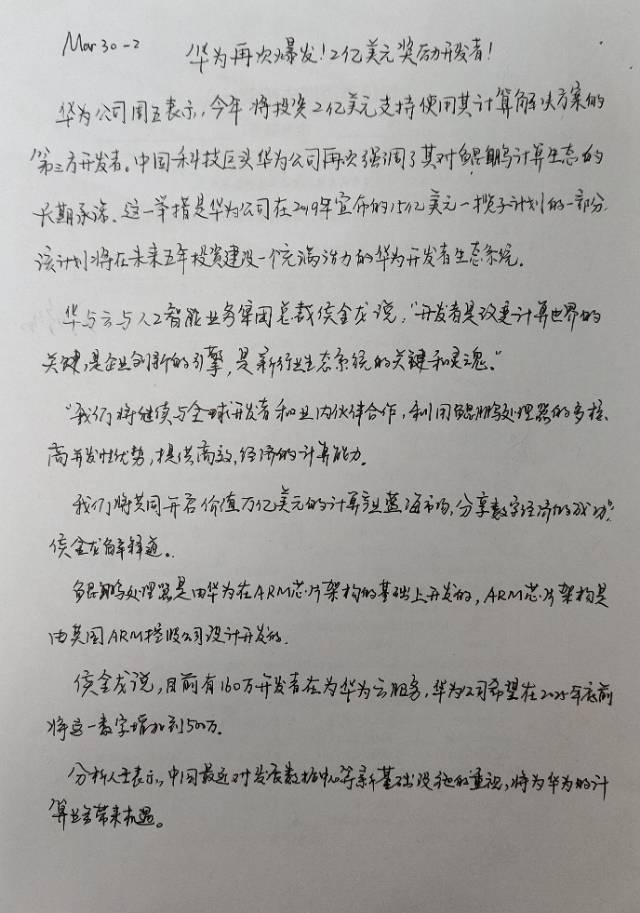 Mar 30-2 华为再次爆发!2亿美元奖励开发者!
华为公司周五表示,今年将投资2亿美元支持使用其计算解决方案的
第三方开发者。中国科技巨头华为公司再次强调了其对鲲鹏计算生态的
长期承诺。这一举措是华为公司在2019年宣布的15亿美元一揽子计划的一部分,
该计划将在未来五年投资建设一个充满活力的华为开发者生态系统。
华为云与人工智能业务集团总裁侯金龙说,"开发者是改变计算世界的
关键,是企业创新的引擎,是新行业生态系统的关键和灵魂。"
"我们将继续与全球开发者和业内伙伴合作,利用鲲鹏处理器的多核、
高并发性优势,提供高效、经济的计算能力。
我们将共同开启价值万亿美元的计算产业蓝海市场,分享数字经济的成功",
侯金龙解释道。
鲲鹏处理器是由华为在ARM芯片架构的基础上开发的,ARM芯片架构是
由英国ARM控股公司设计开发的.
侯金龙说,目前有160万开发者在为华为云服务,华为公司希望在2025年底前
将这一数字增加到500万.
分析人士表示,中国最近对发展数据中心等新基础设施的重视,将为华为的计
算业务带来机遇。